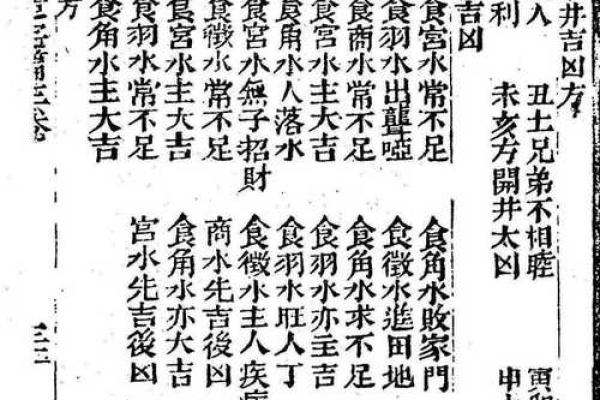 井吉凶方
入 丑土兄弟不相睦 寅卯
利 未亥方開井太凶 申
吉凶
食宮水常不足 食角水敗家門
食羽水出聾啞 食徵水進田地
食商水常不足 食角水求不足
食宮水主大吉 食羽水亦主吉
食角水人落水 食羽水旺人丁
食宮水無子招財 食徵水主人疾
食徵水常不足 商水先吉後凶
食宮水主大吉 食角水亦大吉
食羽水常不足 宮水先吉後凶
食角水主大吉
方